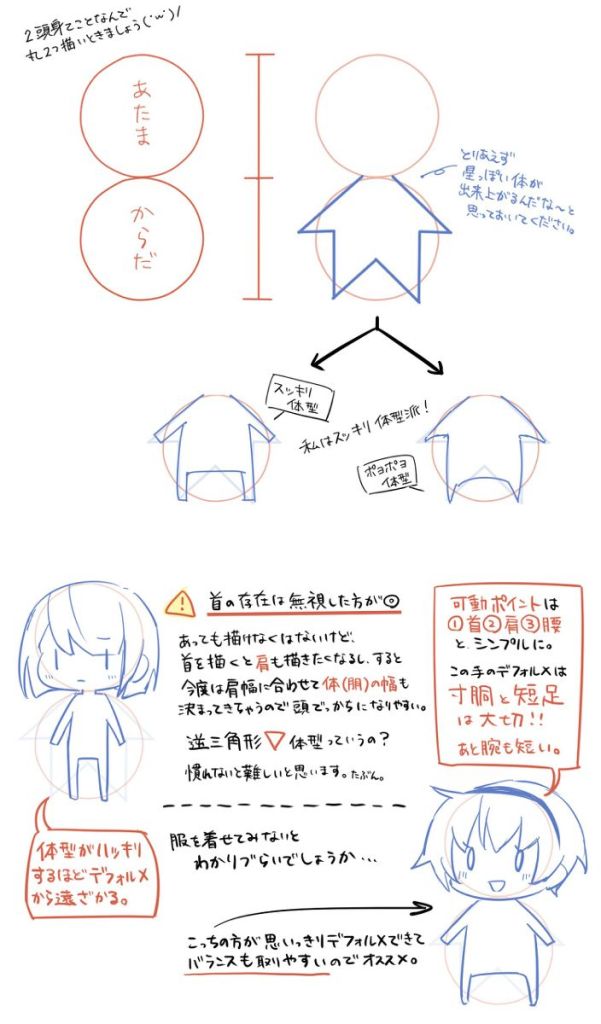 2頭身てことなんで
丸2つ描いときましょう(´ω`)/
あたま
からだ
とりあえず
星っぽい体が
出来上がるんだな〜と
思っておいてください。
スッキリ
体型
私はスッキリ体型派!
ポヨポヨ
体型
首の存在は無視した方が◎
あっても描けなくはないけど、
首を描くと肩も描きたくなるし、すると
今度は肩幅に合わせて体(胴)の幅も
決まってきちゃうので頭でっかちになりやすい。
逆三角形▽体型っていうの?
慣れないと難しいと思います。たぶん。
可動ポイントは
①首②肩③腰
と、シンプルに。
この手のデフォルメは
寸胴と短足
は大切!!
あと腕も短い。
体型がハッキリ
するほどデフォルメ
から遠ざかる。
服を着せてみないと
わかりづらいでしょうか…
こっちの方が思いっきりデフォルメできて
バランスも取りやすいのでオススメ。